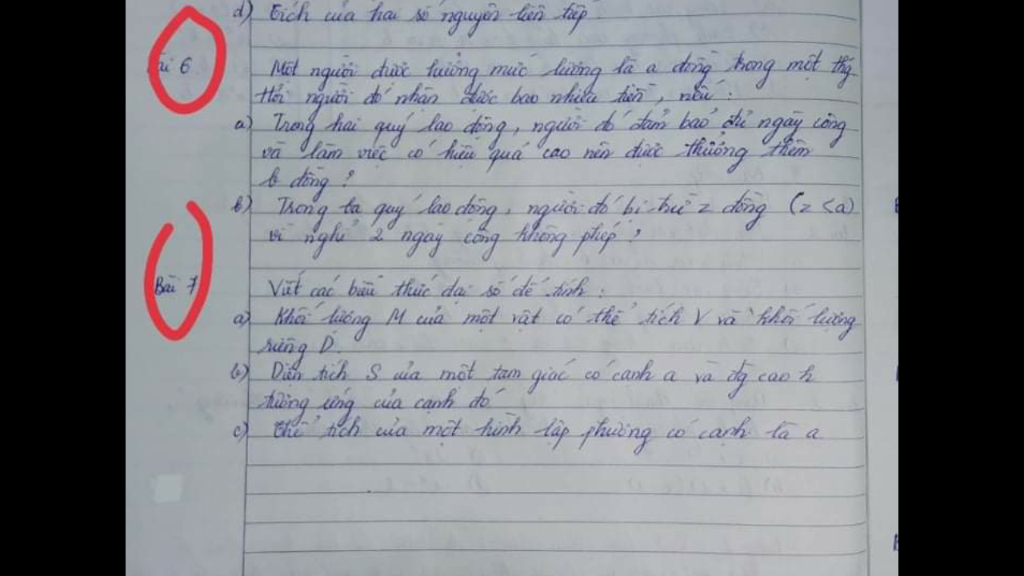 d) Tích của hai số nguyên liên tiếp.
Bài 6 Một người được hưởng mức lương là a đồng trong một thg
Hỏi người đó nhận được bao nhiêu tiền, nếu:
a) Trong hai quý lao động, người đó đảm bảo đủ ngày công
và làm việc có hiệu quả cao nên được thưởng thêm
b đồng?
b) Trong ba quý lao động, người đó bị trừ z đồng (z < a)
vì nghỉ 2 ngày công không phép?
Bài 7 Viết các biểu thức đại số để tính:
a) Khối lượng M của một vật có thể tích V và khối lượng
riêng D.
b) Diện tích S của một tam giác có cạnh a và đg cao h
tương ứng của cạnh đó
c) Thể tích của một hình lập phương có cạnh là a